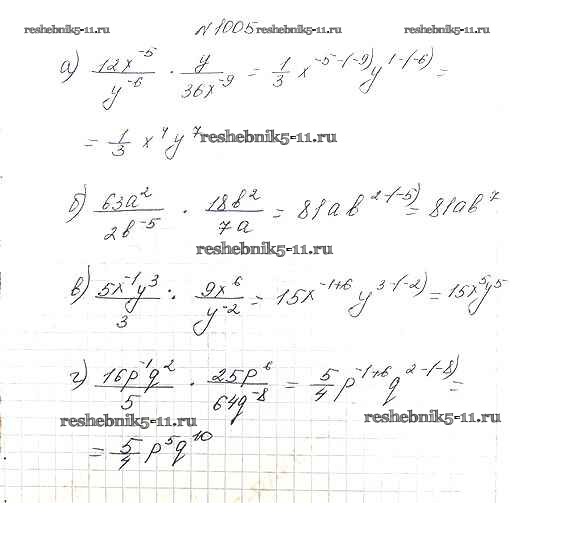 reshebnik5-11.ru №1005 reshebnik5-11.ru reshebnik5-11.ru
а) 12x⁻⁵/y⁻⁶ · y/36x⁻⁹ = 1/3 x⁻⁵⁻⁽⁻⁹⁾ y¹⁻⁽⁻⁶⁾ =
= 1/3 x⁴ y⁷ reshebnik5-11.ru
б) 63a²/2b⁻⁵ · 18b²/7a = 81ab²⁻⁽⁻⁵⁾ = 81ab⁷
reshebnik5-11.ru
в) 5x⁻¹y³/3 · 9x⁶/y⁻² = 15x⁻¹⁺⁶ y³⁻⁽⁻²⁾ = 15x⁵y⁵
г) 16p⁻¹q²/5 · 25p⁶/64q⁻⁸ = 5/4 p⁻¹⁺⁶ q²⁻⁽⁻⁸⁾ =
reshebnik5-11.ru reshebnik5-11.ru
= 5/4 p⁵q¹⁰